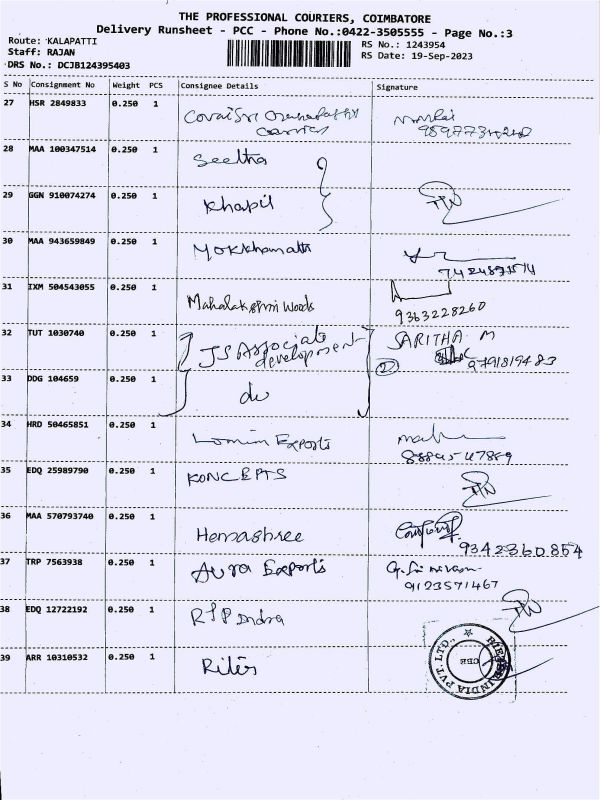 THE PROFESSIONAL COURIERS, COIMBATORE
Delivery Runsheet - PCC - Phone No.:0422-3505555 - Page No.:3
Route: KALAPATTI
Staff: RAJAN
DRS No.: DCJB124395403
RS No.: 1243954
RS Date: 19-Sep-2023
S No Consignment No Weight PCS Consignee Details Signature
27 HSR 2849833 0.250 1 Covai Sri
28 MAA 100347514 0.250 1 Seetha
29 GGN 910074274 0.250 1 Khapil
30 MAA 943659849 0.250 1
31 IXM 504543055 0.250 1 Mahalakshmi Woods
9363228260
32 TUT 1030740 0.250 1 JS Associate SARITHA M
development
33 DDG 104659 0.250 1 do
34 HRD 50465851 0.250 1 Exports
35 EDQ 25989790 0.250 1 KONCEPTS
36 MAA 570793740 0.250 1 Hemashree
9342360854
37 TRP 7563938 0.250 1 Aura Exports
9123571467
38 EDQ 12722192 0.250 1
39 ARR 10310532 0.250 1
INDIA PVT. LTD.,
CBE